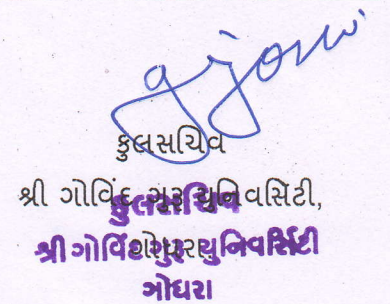 કુલસચિવ
શ્રી ગોવિંદ ગુરૂ યુનિવર્સિટી,
ગોધરા
કુલસચિવ
શ્રી ગોવિંદ ગુરૂ યુનિવર્સિટી
ગોધરા